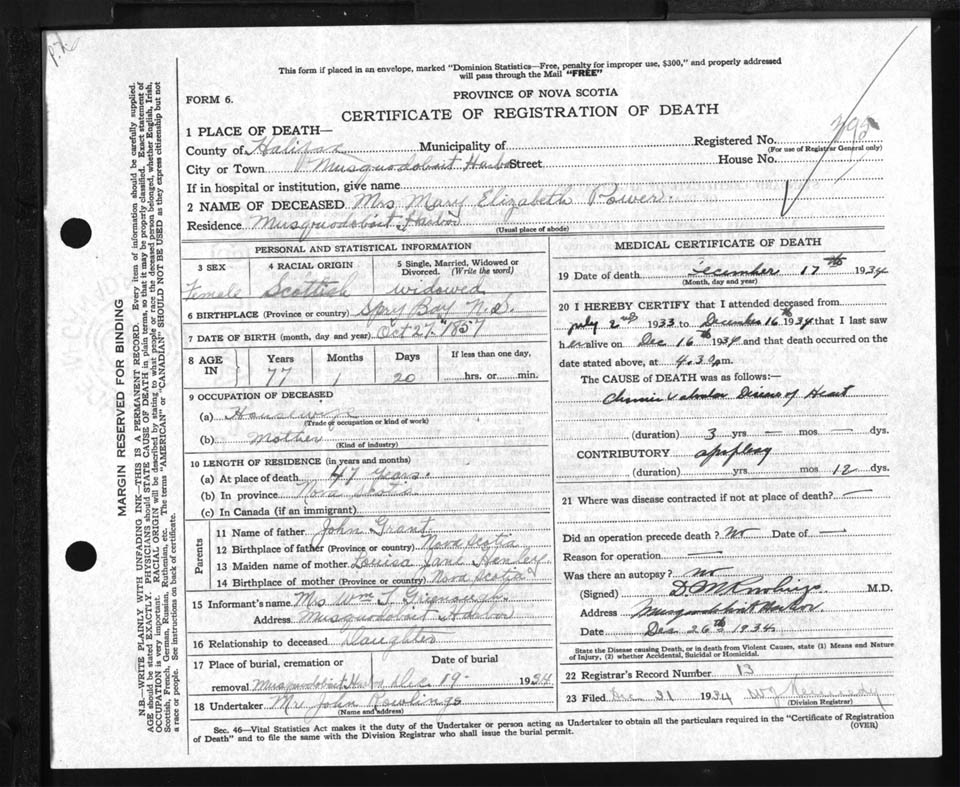 This form if placed in an envelope, marked "Dominion Statistics—Free, penalty for improper use, $300," and properly addressed
will pass through the Mail "FREE"
FORM 6.
PROVINCE OF NOVA SCOTIA
CERTIFICATE OF REGISTRATION OF DEATH
1 PLACE OF DEATH—
County of Halifax Municipality of Registered No.
(For use of Registrar General only)
City or Town Musquodoboit Harbor Street House No.
If in hospital or institution, give name
2 NAME OF DECEASED Mrs Mary Elizabeth Power.
Residence Musquodoboit Harbor
(Usual place of abode)
PERSONAL AND STATISTICAL INFORMATION
3 SEX 4 RACIAL ORIGIN 5 Single, Married, Widowed or Divorced. (Write the word)
Female Scottish widowed
6 BIRTHPLACE (Province or country) Spry Bay N.S.
7 DATE OF BIRTH (month, day and year) Oct 27th 1857
8 AGE IN Years Months Days If less than one day,
77 1 20 hrs. or min.
9 OCCUPATION OF DECEASED
(a) Housewife
(Trade or occupation or kind of work)
(b) Mother
(Kind of industry)
10 LENGTH OF RESIDENCE (in years and months)
(a) At place of death 47 years.
(b) In province Nova Scotia
(c) In Canada (if an immigrant)
Parents
11 Name of father John Grant
12 Birthplace of father (Province or country) Nova Scotia
13 Maiden name of mother Louisa Jane Henley
14 Birthplace of mother (Province or country) Nova Scotia
15 Informant's name Mrs Wm T. Greenough
Address Musquodoboit Harbor
16 Relationship to deceased Daughter
17 Place of burial, cremation or Date of burial
removal Musquodoboit Harbor Dec 19- 1934
18 Undertaker Mr John Rawlings
(Name and address)
MEDICAL CERTIFICATE OF DEATH
19 Date of death December 17th 1934
(Month, day and year)
20 I HEREBY CERTIFY that I attended deceased from
July 2nd 1933 to December 16th 1934 that I last saw
her alive on Dec 16th 1934 and that death occurred on the
date stated above, at 4.30 pm.
The CAUSE OF DEATH was as follows:—
Chronic Valvular Disease of Heart
(duration) 3 yrs — mos — dys.
CONTRIBUTORY apoplexy
(duration) yrs. mos 12 dys.
21 Where was disease contracted if not at place of death? —
Did an operation precede death? No Date of —
Reason for operation —
Was there an autopsy? no
(Signed) M.D.
Address Musquodoboit Harbor
Date Dec 26th 1934
State the Disease causing Death, or in death from Violent Causes, state (1) Means and
Nature of Injury, (2) whether Accidental, Suicidal or Homicidal.
22 Registrar's Record Number 13
23 Filed Dec 31 1934 W J Kennedy
(Division Registrar)
Sec. 46—Vital Statistics Act makes it the duty of the Undertaker or person acting as Undertaker to obtain all the particulars required in the "Certificate of Registration
of Death" and to file the same with the Division Registrar who shall issue the burial permit.
(OVER)
MARGIN RESERVED FOR BINDING
N.B.—WRITE PLAINLY WITH UNFADING INK—THIS IS A PERMANENT RECORD. Every item of information should be carefully supplied.
AGE should be stated EXACTLY. PHYSICIANS should STATE CAUSE OF DEATH in plain terms, so that it may be properly classified. Exact statement of
OCCUPATION is very important. RACIAL ORIGIN will be described by stating to what people or race the deceased person belonged, whether English, Irish,
Scottish, French, German, Russian, Ruthenian, etc. The terms "AMERICAN" or "CANADIAN" SHOULD NOT BE USED as they express citizenship but not
a race or people. See instructions on back of certificate.